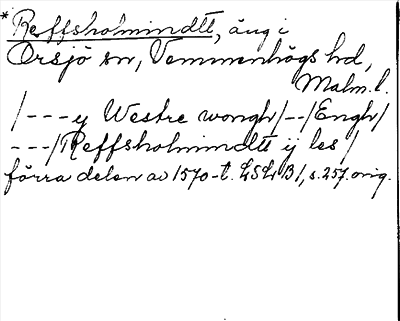 * Reffsholmindtt, äng i
Örsjö sn, Vemmenhögs hd,
Malm. l.
/---y Westre wongh/--/Engh/
---/Reffsholmindtt ij les/
förra delen av 1570-t. LSLB1, s. 257. orig.